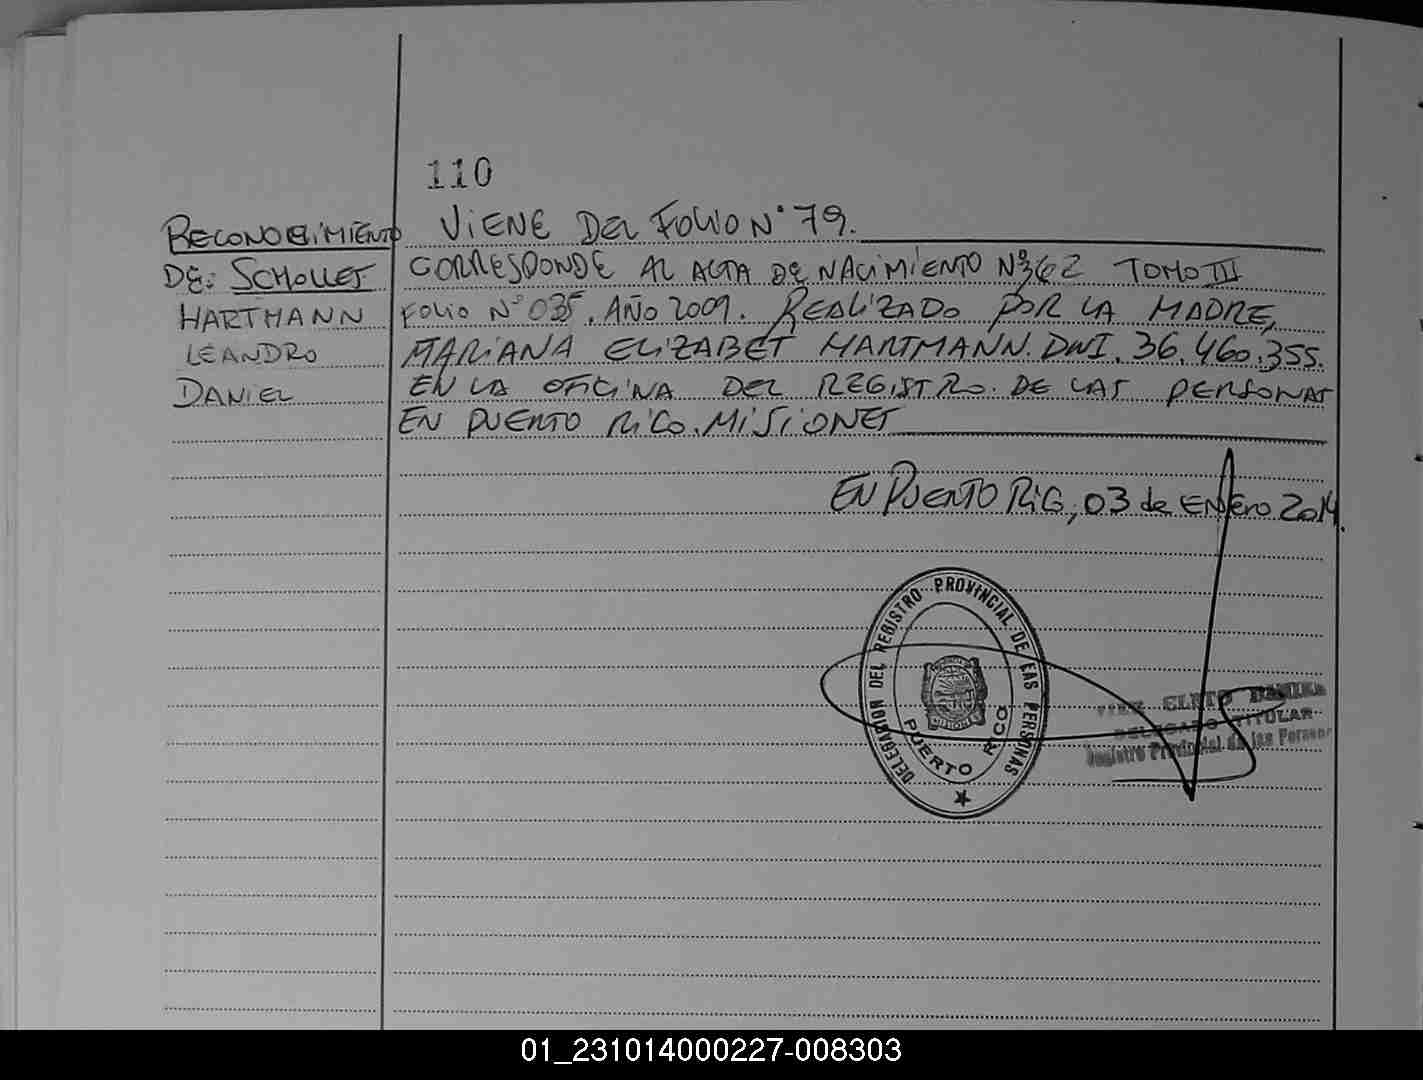 110
RECONOCIMIENTO VIENE DEL FOLIO N° 79.
DE: SCHOLLES CORRESPONDE AL ACTA DE NACIMIENTO N° 362 TOMO III
HARTMANN FOLIO N° 035. AÑO 2009. REALIZADO POR LA MADRE,
LEANDRO MARIANA ELIZABET HARTMANN. DNI. 36.460.355.
DANIEL EN LA OFICINA DEL REGISTRO DE LAS PERSONAS
EN PUERTO RICO. MISIONES
EN PUERTO RICO, 03 de ENERO 2014.
DELEGACION DEL REGISTRO PROVINCIAL DE LAS PERSONAS
PUERTO RICO
MISIONES
DELEGADO TITULAR
Registro Provincial de las Personas
01_231014000227-008303